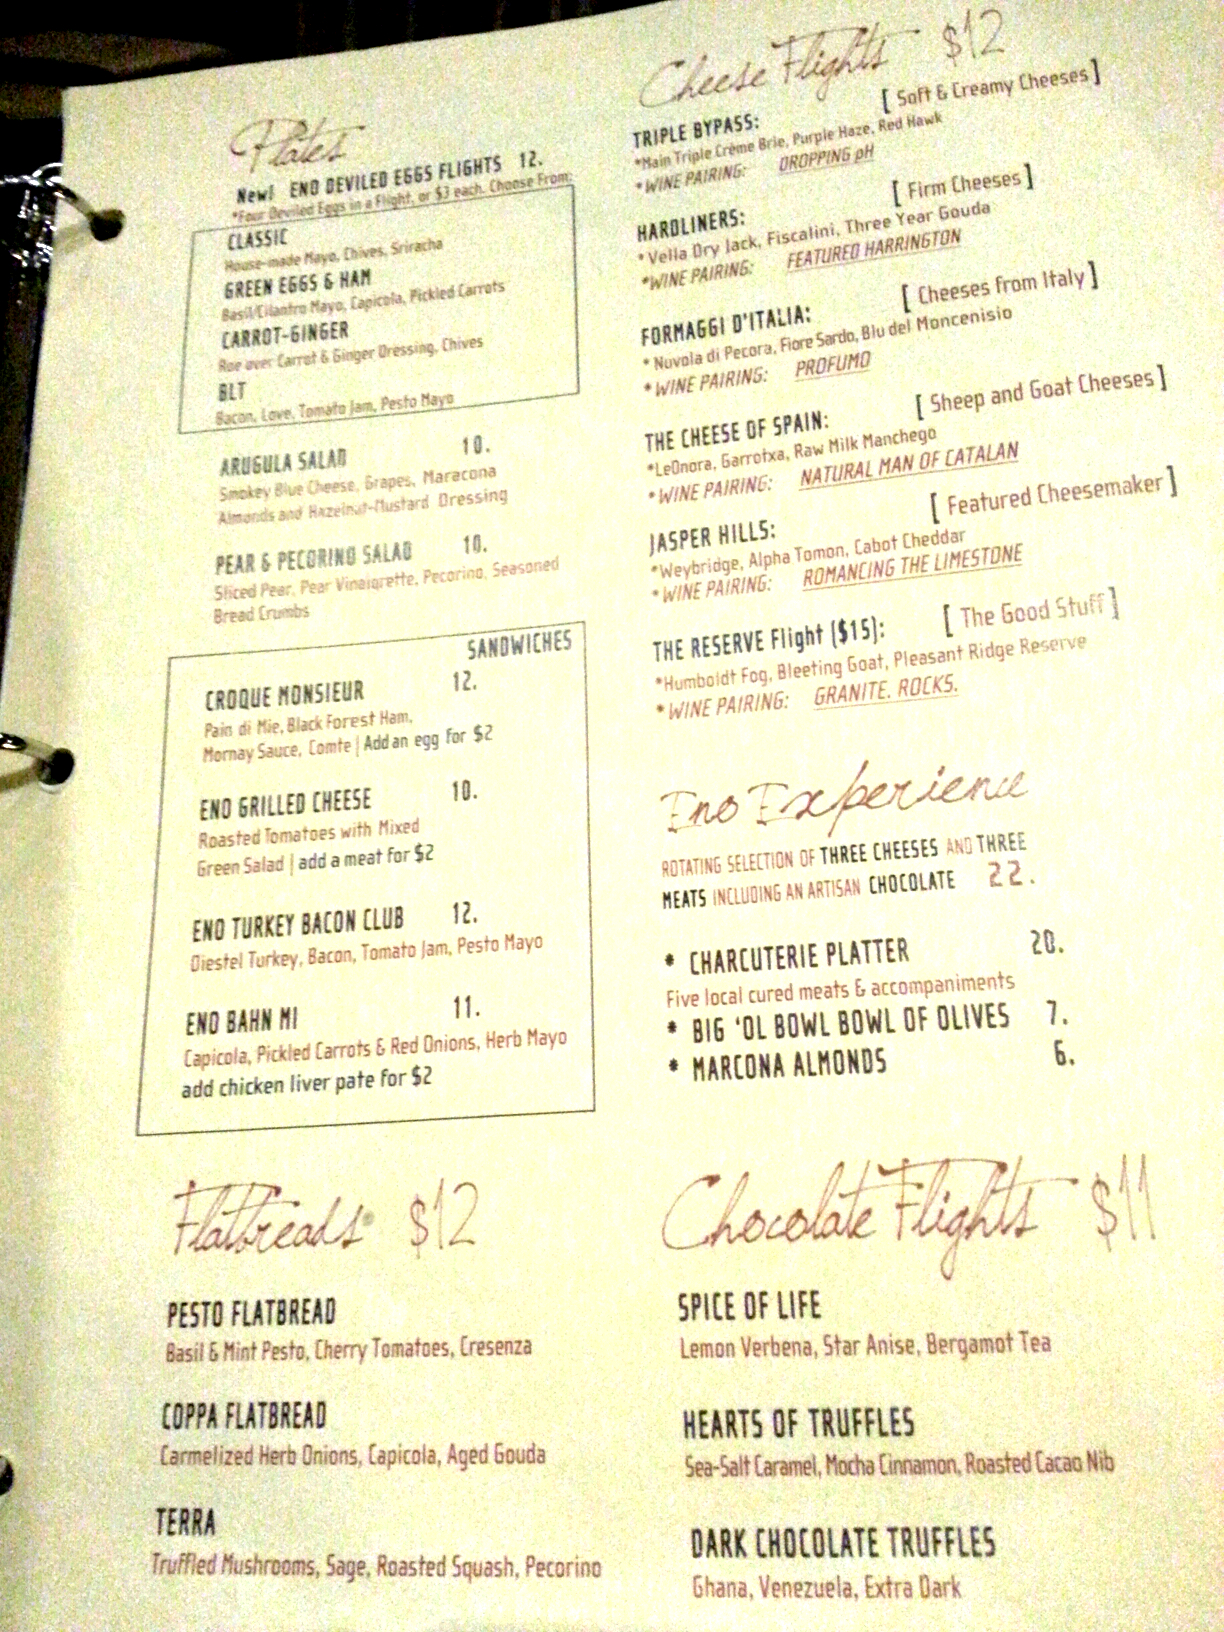 Plates
New! ENO DEVILED EGGS FLIGHTS 12.
*Four Deviled Eggs in a Flight, or $3 each. Choose From:
CLASSIC
House-made Mayo, Chives, Sriracha
GREEN EGGS & HAM
Basil/Cilantro Mayo, Capicola, Pickled Carrots
CARROT-GINGER
Roe over Carrot & Ginger Dressing, Chives
BLT
Bacon, Love, Tomato Jam, Pesto Mayo
ARUGULA SALAD 10.
Smokey Blue Cheese, Grapes, Maracona
Almonds and Hazelnut-Mustard Dressing
PEAR & PECORINO SALAD 10.
Sliced Pear, Pear Vinaigrette, Pecorino, Seasoned
Bread Crumbs
SANDWICHES
CROQUE MONSIEUR 12.
Pain di Mie, Black Forest Ham,
Mornay Sauce, Comte | Add an egg for $2
ENO GRILLED CHEESE 10.
Roasted Tomatoes with Mixed
Green Salad | add a meat for $2
ENO TURKEY BACON CLUB 12.
Diestel Turkey, Bacon, Tomato Jam, Pesto Mayo
ENO BAHN MI 11.
Capicola, Pickled Carrots & Red Onions, Herb Mayo
add chicken liver pate for $2
Flatbreads $12
PESTO FLATBREAD
Basil & Mint Pesto, Cherry Tomatoes, Cresenza
COPPA FLATBREAD
Carmelized Herb Onions, Capicola, Aged Gouda
TERRA
Truffled Mushrooms, Sage, Roasted Squash, Pecorino
Cheese Flights $12
TRIPLE BYPASS: [ Soft & Creamy Cheeses ]
*Main Triple Crème Brie, Purple Haze, Red Hawk
*WINE PAIRING: DROPPING pH
HARDLINERS: [ Firm Cheeses ]
*Vella Dry Jack, Fiscalini, Three Year Gouda
*WINE PAIRING: FEATURED HARRINGTON
FORMAGGI D'ITALIA: [ Cheeses from Italy ]
* Nuvola di Pecora, Fiore Sardo, Blu del Moncenisio
*WINE PAIRING: PROFUMO
THE CHEESE OF SPAIN: [ Sheep and Goat Cheeses ]
*LeOnora, Garrotxa, Raw Milk Manchego
*WINE PAIRING: NATURAL MAN OF CATALAN
JASPER HILLS: [ Featured Cheesemaker ]
*Weybridge, Alpha Tomon, Cabot Cheddar
*WINE PAIRING: ROMANCING THE LIMESTONE
THE RESERVE Flight ($15): [ The Good Stuff ]
*Humboldt Fog, Bleeting Goat, Pleasant Ridge Reserve
*WINE PAIRING: GRANITE. ROCKS.
Eno Experience
ROTATING SELECTION OF THREE CHEESES AND THREE
MEATS INCLUDING AN ARTISAN CHOCOLATE 22.
* CHARCUTERIE PLATTER 20.
Five local cured meats & accompaniments
* BIG 'OL BOWL BOWL OF OLIVES 7.
* MARCONA ALMONDS 6.
Chocolate Flights $11
SPICE OF LIFE
Lemon Verbena, Star Anise, Bergamot Tea
HEARTS OF TRUFFLES
Sea-Salt Caramel, Mocha Cinnamon, Roasted Cacao Nib
DARK CHOCOLATE TRUFFLES
Ghana, Venezuela, Extra Dark